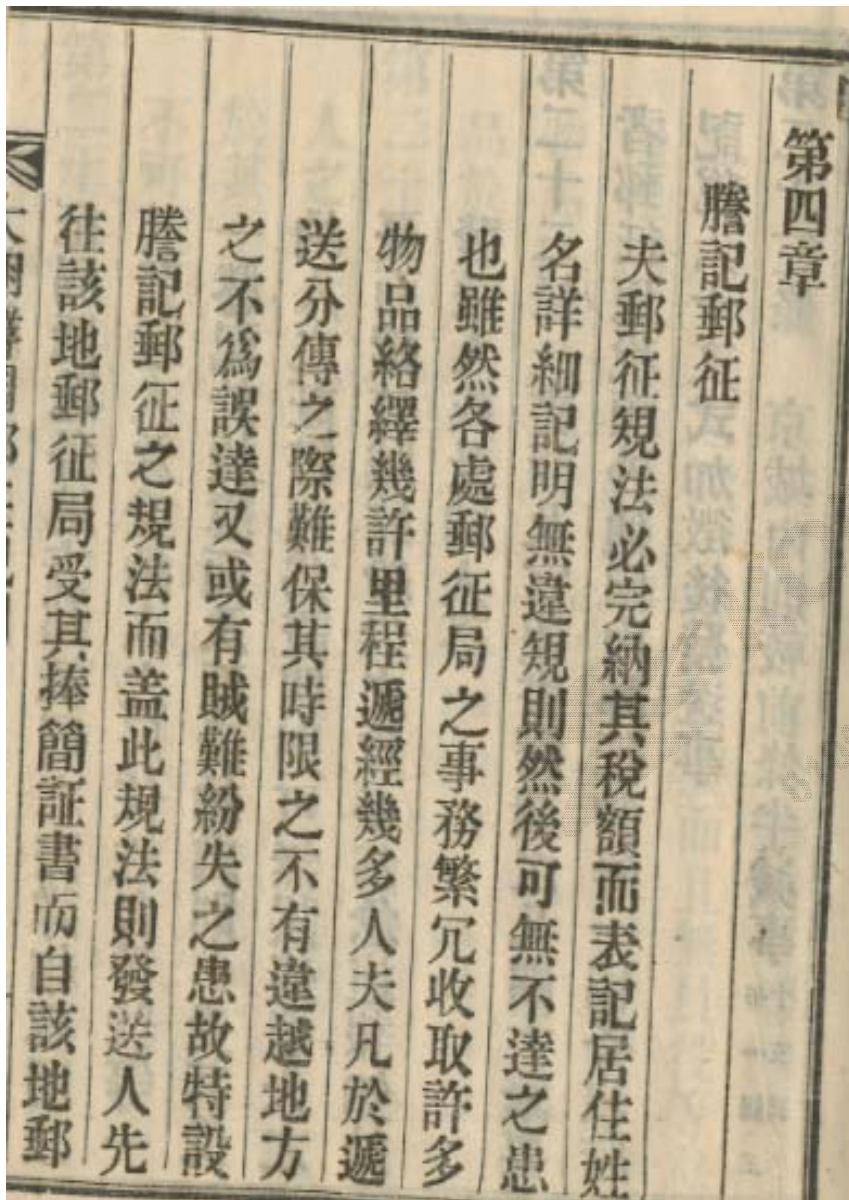 第四章
謄記郵征
夫郵征規法必完納其稅額而表記居住姓
名詳細記明無違規則然後可無不達之患
也雖然各處郵征局之事務繁冗收取許多
物品絡繹幾許里程遞經幾多人夫凡於遞
送分傳之際難保其時限之不有違越地方
之不爲誤達又或有賊難紛失之患故特設
謄記郵征之規法而盖此規法則發送人先
往該地郵征局受其捧簡証書而自該地郵